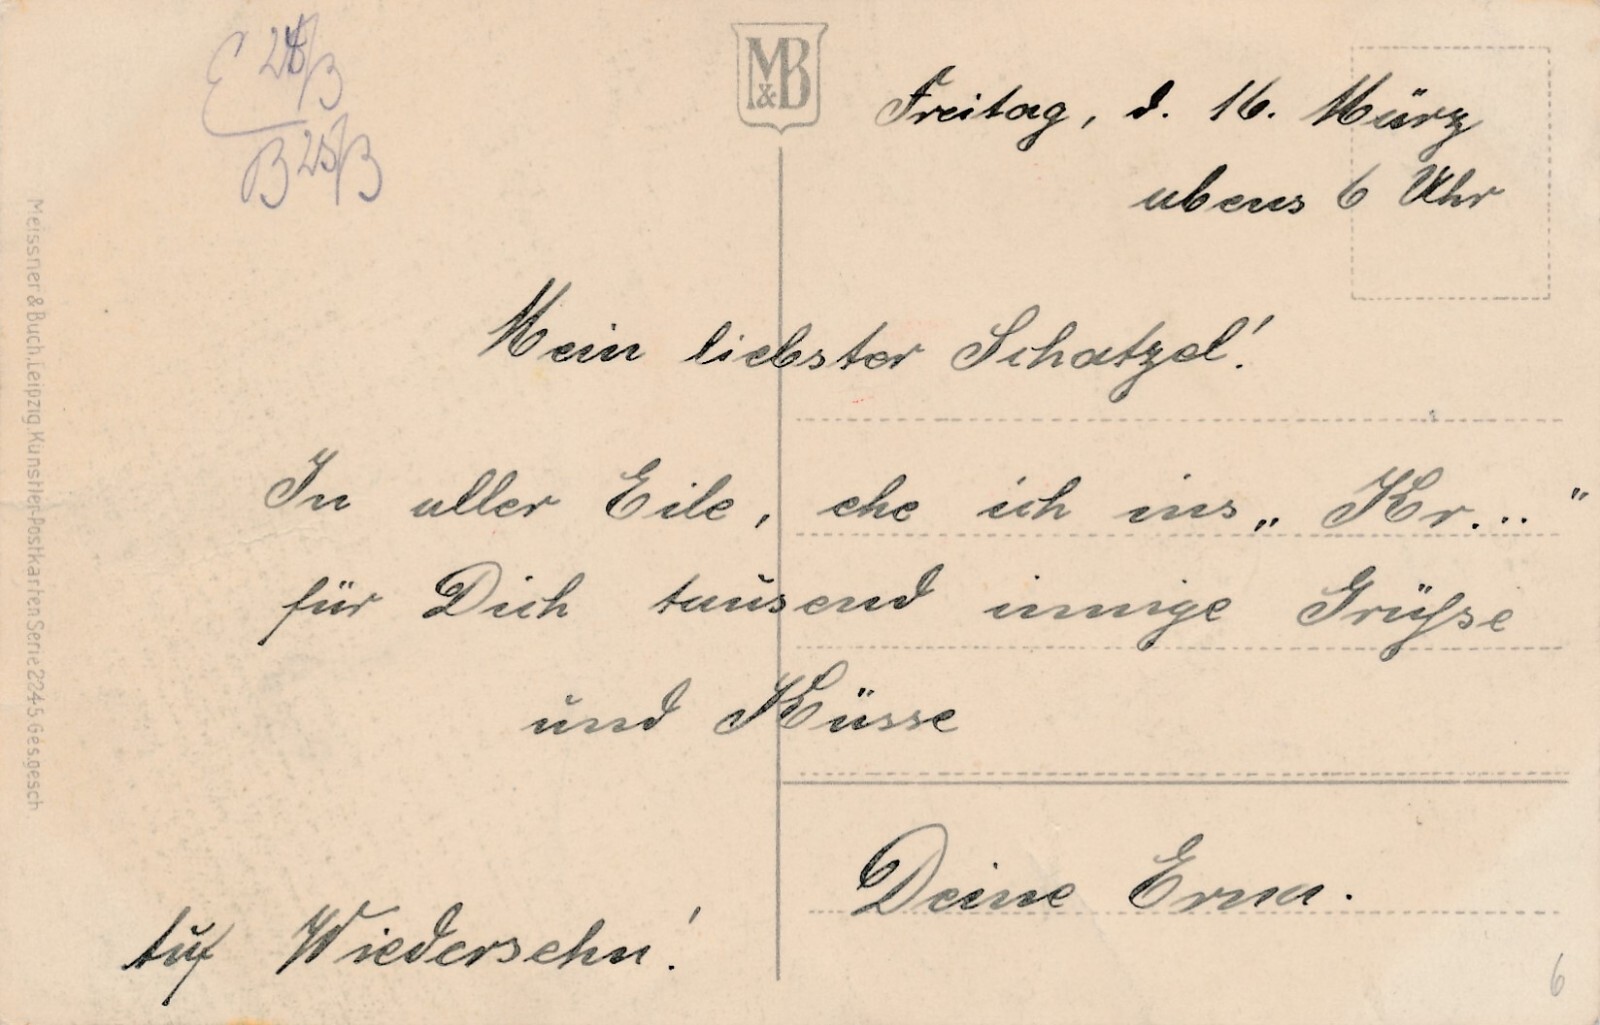 E 28/B
B 25/B
M&B
Freitag, d. 16. März
abens 6 Uhr
Mein liebster Schatzel!
In aller Eile, ehe ich ins „Kr..."
für Dich tausend innige Grüsse
und Küsse
Deine Erna.
Auf Wiedersehn!
6
Meissner & Buch, Leipzig, Künstler-Postkarten Serie 2245 Ges.gesch